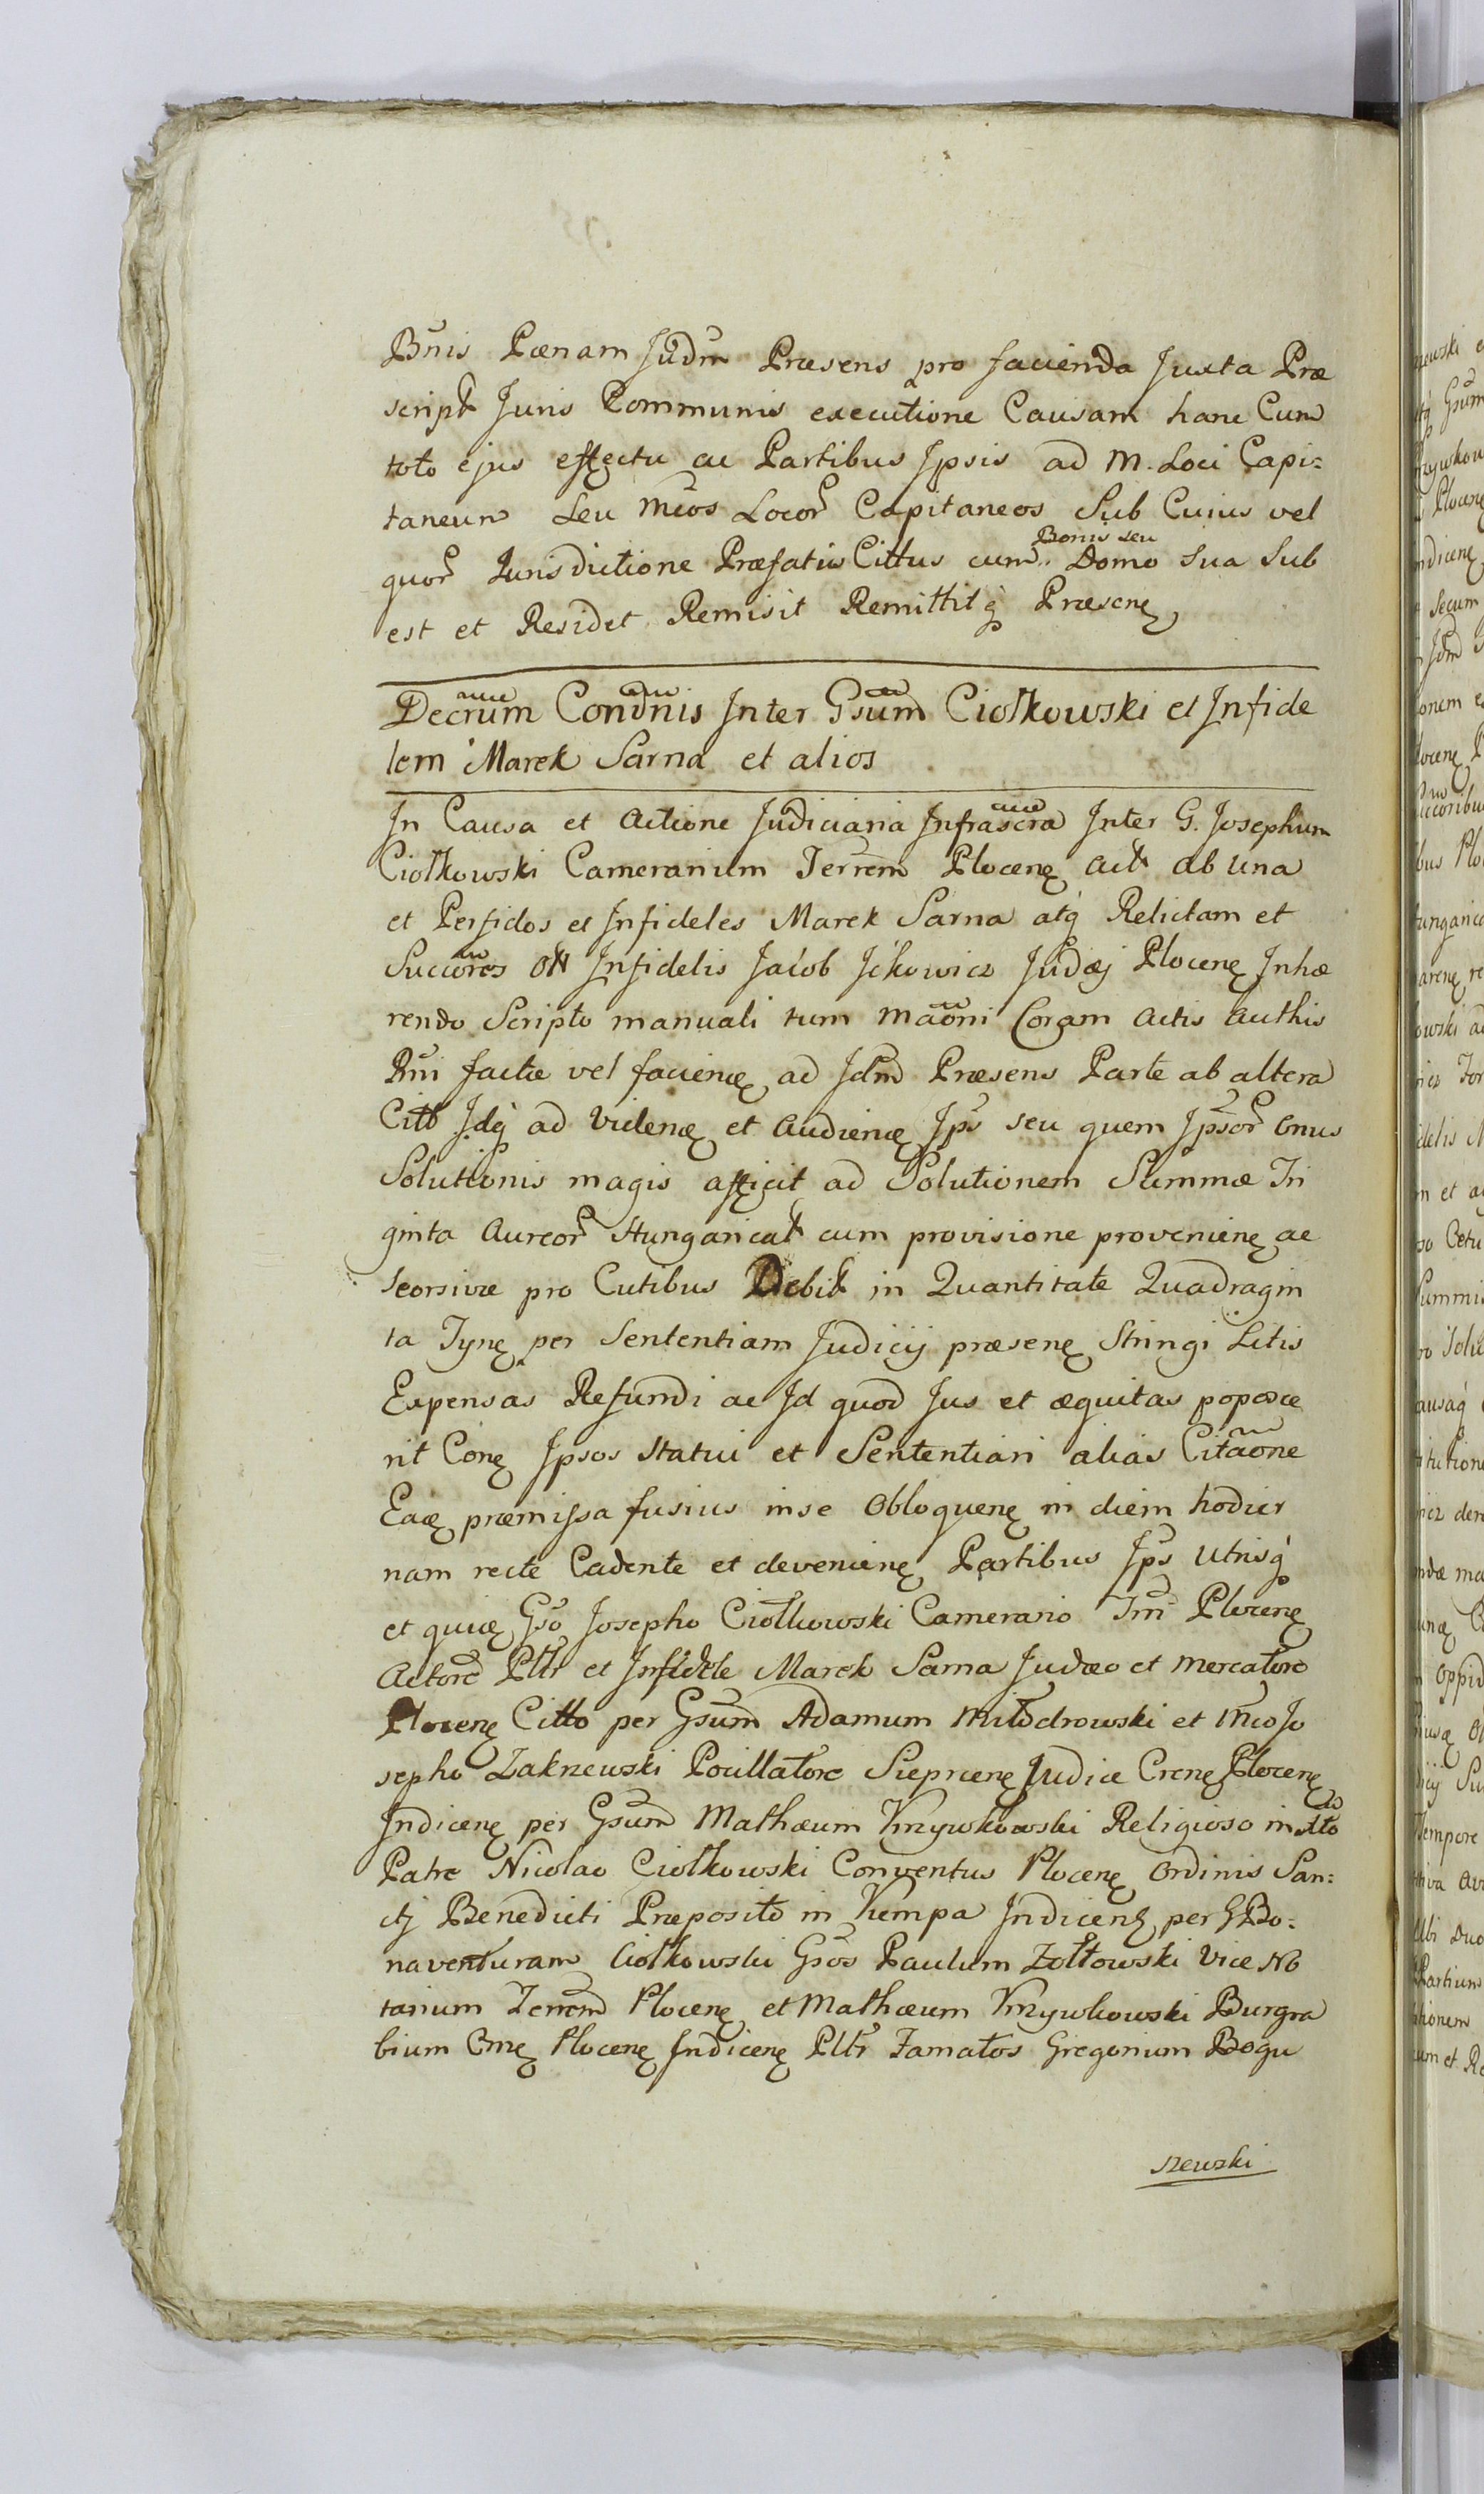 Bnis Pœnam Judm Præsens pro facienda Juxta Præ
script Juris Communis executione Causam hanc Cum
toto ejus effectu ac Partibus Ipsis ad M. Loci Capi=
taneum Seu Mcos Locor Capitaneos Sub Cuius vel
quor Jurisdictione Præfatus Cittus cum Bonis seu Domo Sua Sub
est et Residet Remisit Remittitq Præsenę
Decrum Condnis Inter Gsum Ciołkowski et Infide
lem Marek Sarna et alios
In Causa et Actione Judiciaria Infrascra Inter G. Josephum
Ciołkowski Camerarium Terrem Plocenę Act ab una
et Perfidos et Infideles Marek Sarna atq Relictam et
Succores Infidelis Jacob Ickowicz Judæj Plocenę Inhæ
rendo Scripto manuali tum maoni Coram Actis Authis
factæ vel faciene ad Jdm Præsens Parte ab altera
Citt Idq ad Videnę et Audienę Ips seu quem Ipsor Onus
Solutionis magis afficit ad Solutionem Summæ Tri
ginta Aureor Hungarical cum provisione provenienę ac
seorsive pro Cutibus Debit in Quantitate Quadragin
ta Tynę per Sententiam Judicij præsenę Stringi Litis
Expensas Refundi ac Id quod Jus et æquitas poposce
rit Conę Ipsos Statui et Sententiari alias Citaone
Eaę præmissa fusius in se Obloquenę in diem hodier
nam recte Cadente et devenienę Partibus Ips Utrisq
et quię Gso Josepho Ciołkowski Camerario Trri Plocenę
Actore Pltr et Infidele Marek Sarna Judæo et mercatore
Plocenę Citto per Gsum Adamum Miłodrowski et Mco Jo
sepho Zakrzewski Pocillatore Sieprcenę Judice Crenę Plocenę
Indicenę per Gsum Mathæum Krzywkowski Religioso in
Patre Nicolao Ciołkowski Conventus Plocenę Ordinis San=
ctj Benedicti Præposito in Kempa Indicenę per G Bo=
naventuram Ciołkowski Gsos Paulum Zołtowski Vice No
tarium Terrem Plocenę et Mathæum Krzywkowski Burgra
bium Crnę Plocenę Indicenę Pltr Famatos Gregorium Bogu
szewski